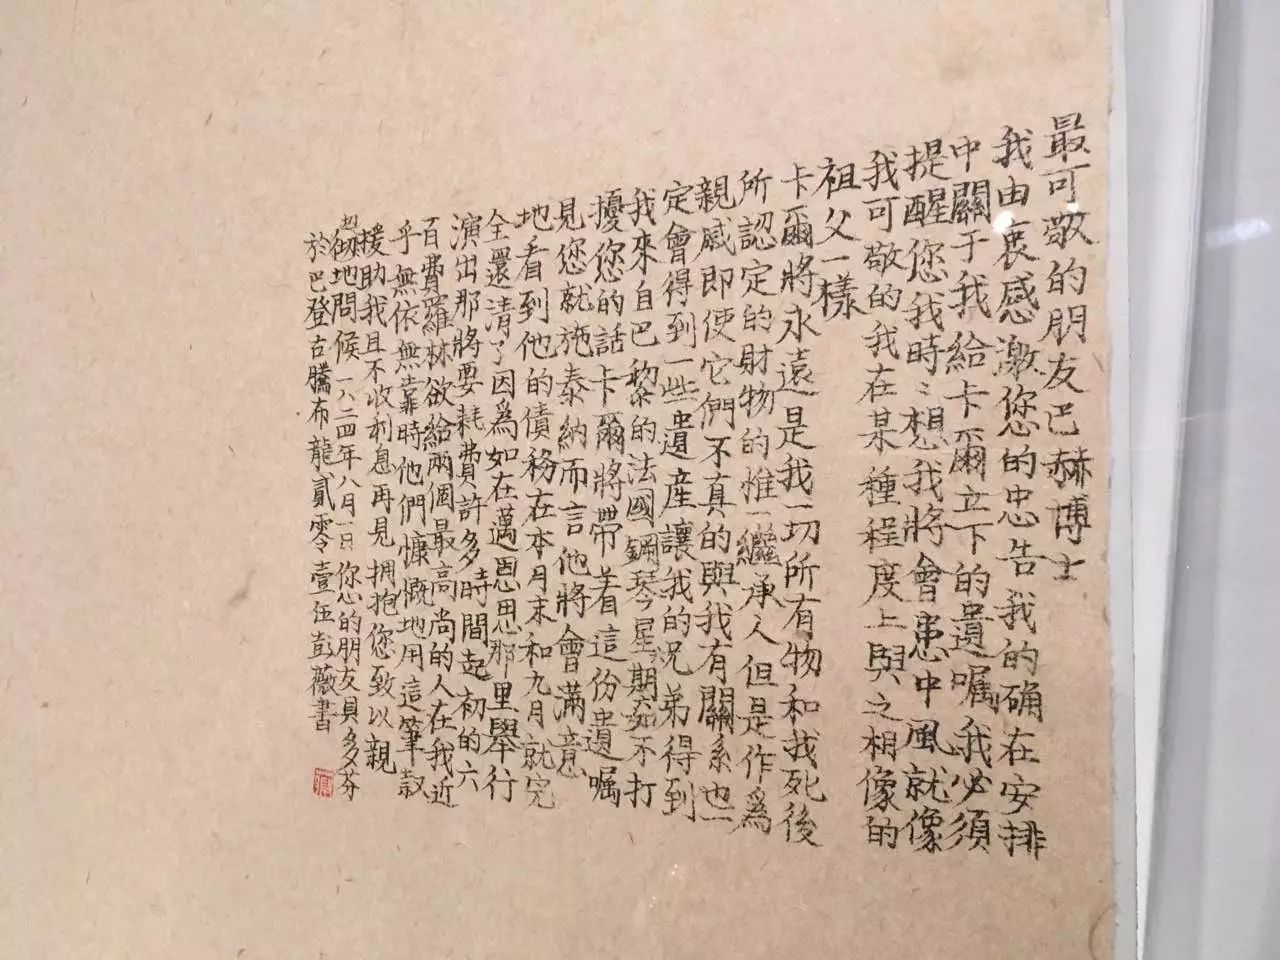 最可敬的朋友巴赫博士
我由衷感激您的忠告我的确在安排
中關于我給卡爾立下的遺嘱我必須
提醒您我時〻想我將會患中風就像
我可敬的我在某種程度上與之相像的
祖父一樣
卡爾將永遠是我一切所有物和我死後
所認定的財物的惟一繼承人但是作爲
親戚即使它們不真的與我有關系也一
定會得到一些遺産讓我的兄弟得到
我來自巴黎的法國鋼琴星期六如不打
擾您的話卡爾將帶着這份遺嘱
見您就施泰納而言他將會滿意
地看到他的債務在本月末和九月就完
全還清了因爲如在邁思思那里舉行
演出那將要耗費許多時間起初的六
百費羅林欲給兩個最高尚的人在我近
乎無依無靠時他們慷慨地用這筆款
援助我且不收利息再見拥抱您致以親
地問候一八二四年八月一日您的朋友貝多芬
於巴登古騰布龍貳零壹伍彭薇書